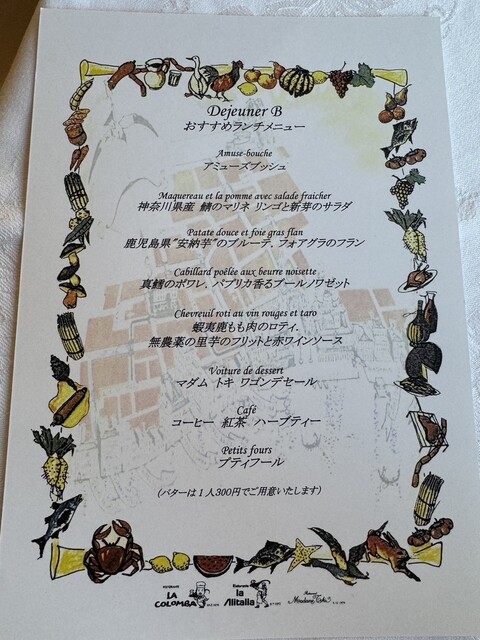 Dejeuner B
おすすめランチメニュー
Amuse-bouche
アミューズブッシュ
Maquereau et la pomme avec salade fraicher
神奈川県産 鯖のマリネ リンゴと新芽のサラダ
Patate douce et foie gras flan
鹿児島県"安納芋"のブルーテ, フォアグラのフラン
Cabillard poêlée aux beurre noisette
真鱈のポワレ, パプリカ香るブールノワゼット
Chevreuil roti au vin rouges et taro
蝦夷鹿もも肉のロティ,
無農薬の里芋のフリットと赤ワインソース
Voiture de dessert
マダム トキ ワゴンデセール
Café
コーヒー 紅茶 ハーブティー
Petits fours
プティフール
(バターは1人300円でご用意いたします)
LA COLOMBA
la Alitalia
Madame Toki